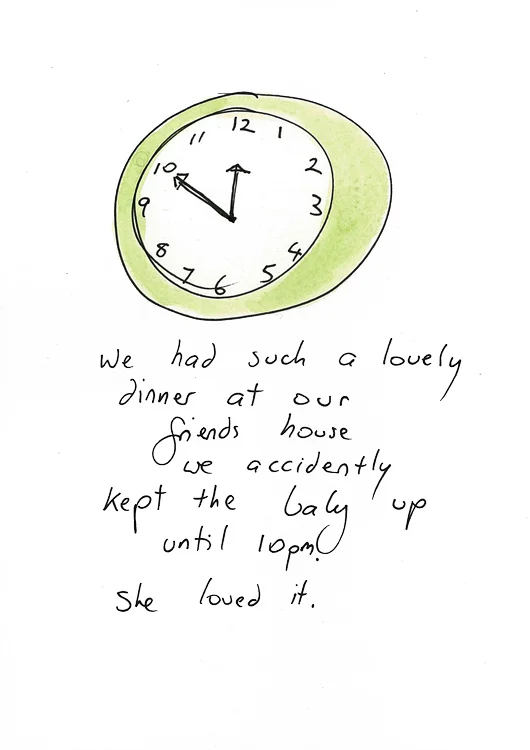 12
11 1
10 2
9 3
8 4
7 5
6
we had such a lovely
dinner at our
friends house
we accidently
kept the baby up
until 10pm!
She loved it.